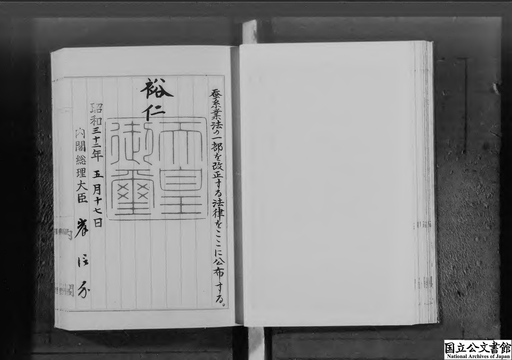 蚕糸業法の一部を改正する法律をここに公布する。
裕仁
天皇御璽
昭和三十二年五月十七日
内閣総理大臣 岸信介
国立公文書館
National Archives of Japan